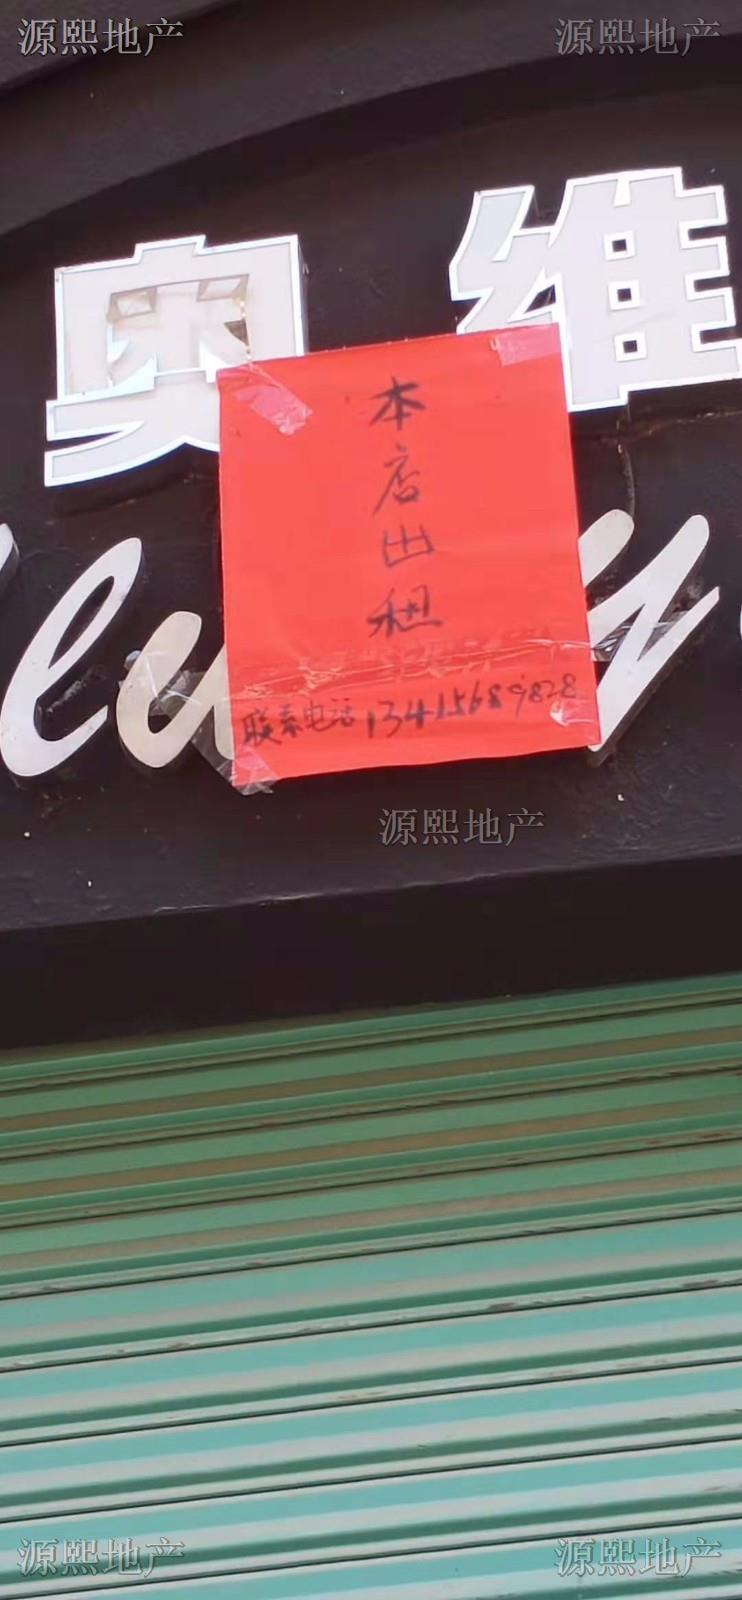 源熙地产 源熙地产
奥维
本店出租
联系电话 13415689828
源熙地产
源熙地产 源熙地产